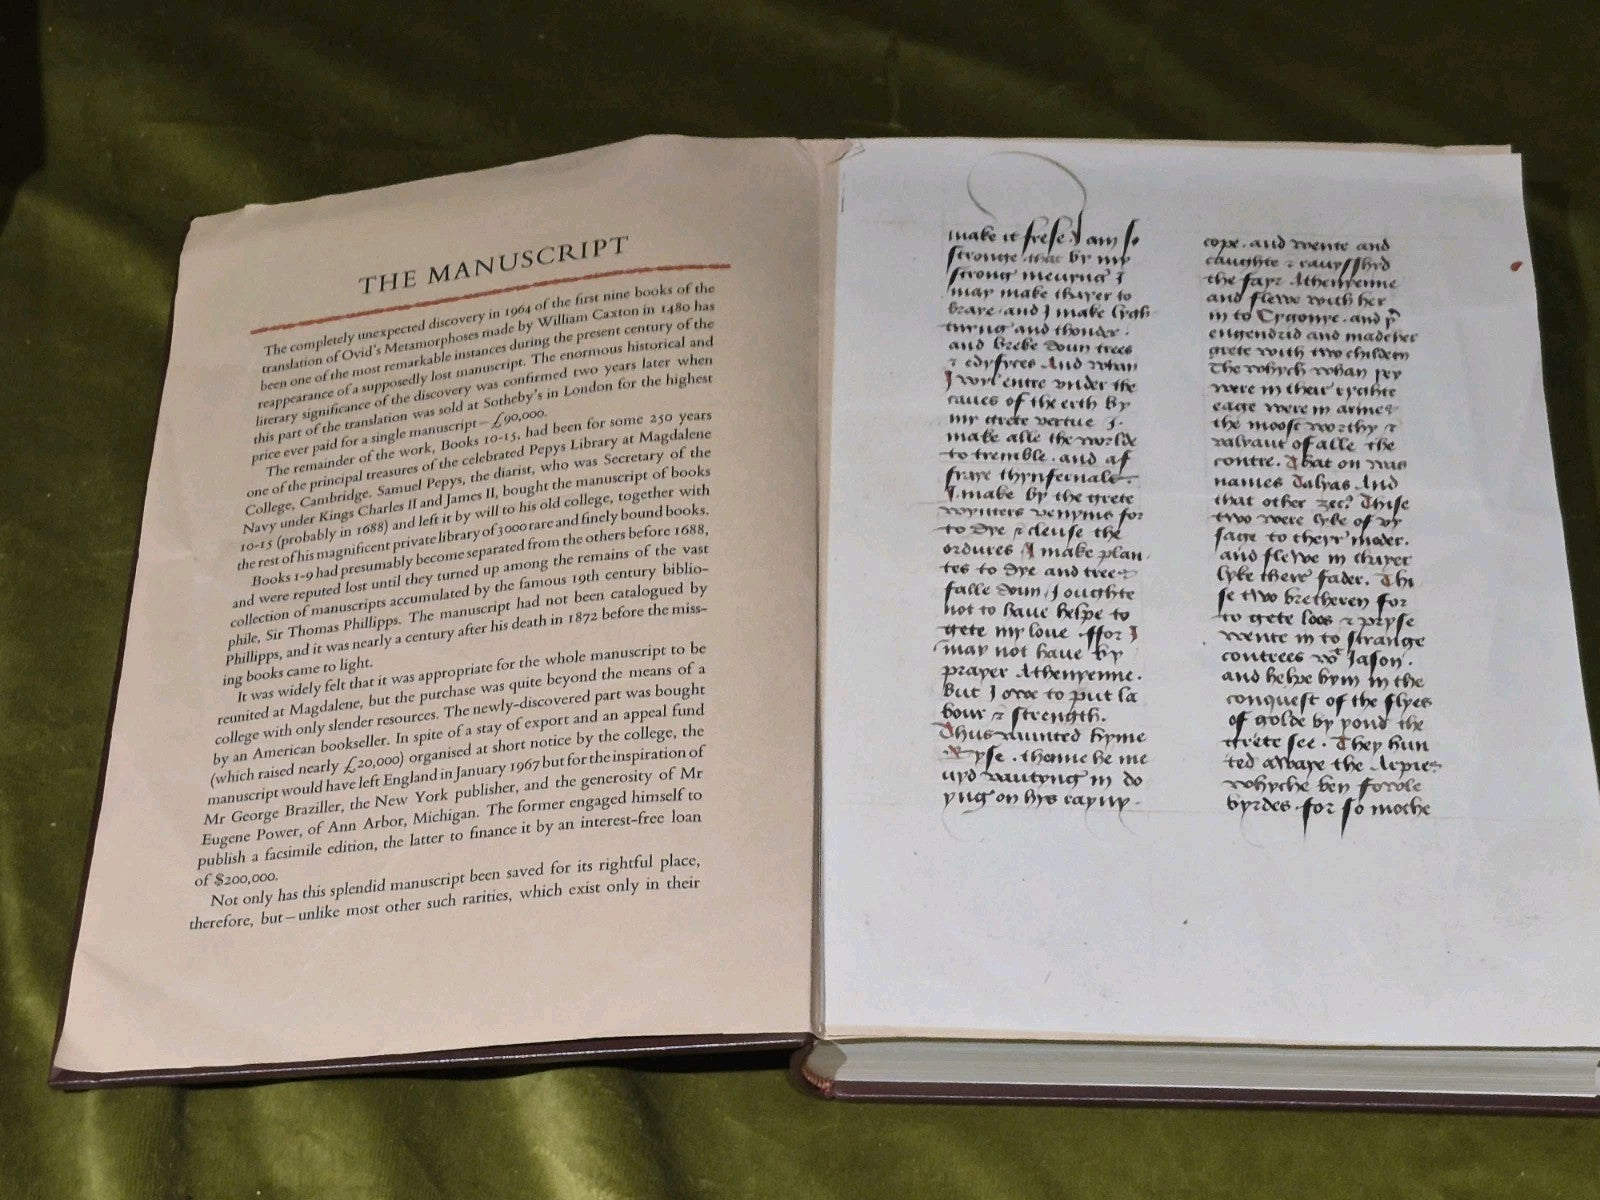 THE MANUSCRIPT
The completely unexpected discovery in 1964 of the first nine books of the
translation of Ovid's Metamorphoses made by William Caxton in 1480 has
been one of the most remarkable instances during the present century of the
reappearance of a supposedly lost manuscript. The enormous historical and
literary significance of the discovery was confirmed two years later when
this part of the translation was sold at Sotheby's in London for the highest
price ever paid for a single manuscript – £90,000.
The remainder of the work, Books 10-15, had been for some 250 years
one of the principal treasures of the celebrated Pepys Library at Magdalene
College, Cambridge. Samuel Pepys, the diarist, who was Secretary of the
Navy under Kings Charles II and James II, bought the manuscript of books
10-15 (probably in 1688) and left it by will to his old college, together with
the rest of his magnificent private library of 3000 rare and finely bound books.
Books 1-9 had presumably become separated from the others before 1688,
and were reputed lost until they turned up among the remains of the vast
collection of manuscripts accumulated by the famous 19th century biblio-
phile, Sir Thomas Phillipps. The manuscript had not been catalogued by
Phillipps, and it was nearly a century after his death in 1872 before the miss-
ing books came to light.
It was widely felt that it was appropriate for the whole manuscript to be
reunited at Magdalene, but the purchase was quite beyond the means of a
college with only slender resources. The newly-discovered part was bought
by an American bookseller. In spite of a stay of export and an appeal fund
(which raised nearly £20,000) organised at short notice by the college, the
manuscript would have left England in January 1967 but for the inspiration of
Mr George Braziller, the New York publisher, and the generosity of Mr
Eugene Power, of Ann Arbor, Michigan. The former engaged himself to
publish a facsimile edition, the latter to finance it by an interest-free loan
of $200,000.
Not only has this splendid manuscript been saved for its rightful place,
therefore, but – unlike most other such rarities, which exist only in their
make it frese I am so
stronge that by my
strong meuyng I
may make thayer to
braye and I make lygh
tnyng and thonder .
and breke doun trees
& edyfyces And whan
I wyl entre vnder the
caues of the erth by
my grete vertue I.
make alle the worlde
to tremble . and af
fraye thynfernalx.
I make by the grete
wynters venyms for
to dye & clense the
ordures I make plan
tes to dye and trees
falle doun I oughte
not to haue helpe to
gete my loue ffor I
may not haue by
prayer Athenyenne.
But I owe to put la
bour & strength.
Thus vaunted hyme
. thenne he me
uyd vautyng in do
yng on hys
cope . and wente and
caughte & rauysshyd
the fayr Athenyenne
and flewe with her
in to Cygonye . and
engendrid and made her
grete with two children
The whych whan they
were in their ryghte
eage were in armes
the moost worthy &
valyant of alle the
contre. That on was
names Calyas And
that other These
two were lyke of vy
sage to theyr moder.
and flewe in thayer
lyke there fader. Thi
se two bretheren for
to gete loos & pryse
wente in to strange
contrees wt Jason .
and helpe hym in the
conquest of the flyes
of golde by yond the
grete see . They hun
ted awaye the Arpies
whyche ben fowle
byrdes . for so moche